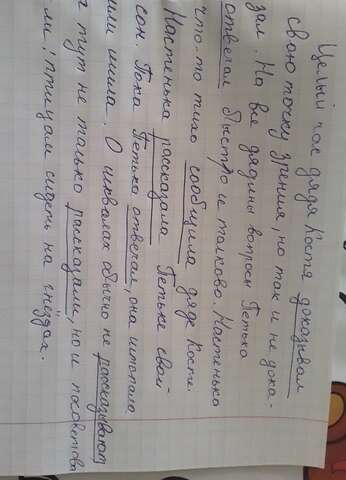 Целый час дядя Костя доказывал
свою точку зрения, но так и не дока-
зал. На все дядины вопросы Петька
отвечал быстро и толково. Настенька
что-то тихо сообщила дяде Косте.
Настенька рассказала Петьке свой
сон. Пока Петька отвечал, она штопала
или шила. О шквалах обычно не рассказывают
а тут не только рассказали, но и посоветова
ли: птицам сидеть на гнёздах.